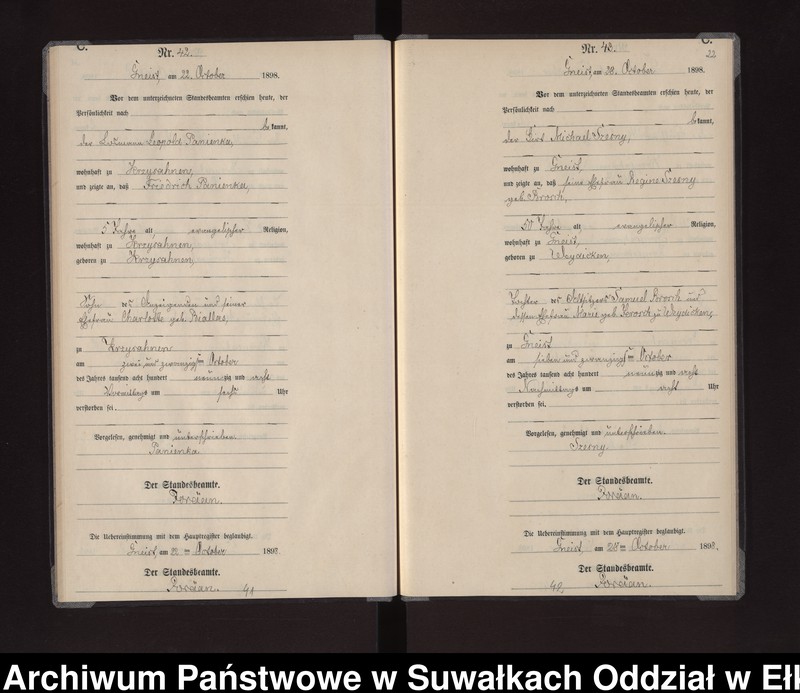 C.
Nr. 42.
Gneist, am 22. October 1898.
Vor dem unterzeichneten Standesbeamten erschien heute, der
Persönlichkeit nach
bekannt,
der Losmann Leopold Panienka,
wohnhaft zu Kreyrahnen,
und zeigte an, daß Friedrich Panienka,
5 Jahre alt, evangelischer Religion,
wohnhaft zu Kreyrahnen,
geboren zu Kreyrahnen,
Sohn des Anzeigenden und seiner
Ehefrau Charlotte geb. Biallas,
zu Kreyrahnen
am zwei und zwanzigsten October
des Jahres tausend acht hundert neunzig und acht
Vormittags um sechs Uhr
verstorben sei.
Vorgelesen, genehmigt und unterschrieben.
Panienka
Der Standesbeamte.
Die Uebereinstimmung mit dem Hauptregister beglaubigt.
Gneist, am 22ten October 1898.
Der Standesbeamte.
41
C.
22
Nr. 43.
Gneist, am 28. October 1898.
Vor dem unterzeichneten Standesbeamten erschien heute, der
Persönlichkeit nach
bekannt,
der Wirt Michael Szesny,
wohnhaft zu Gneist,
und zeigte an, daß seine Ehefrau Regine Szesny
geb.
50 Jahre alt, evangelischer Religion,
wohnhaft zu Gneist,
geboren zu Weydicken,
Tochter des Altsitzers Samuel und
dessen Ehefrau Marie geb. zu Weydicken,
zu Gneist
am sieben und zwanzigsten October
des Jahres tausend acht hundert neunzig und acht
Nachmittags um acht Uhr
verstorben sei.
Vorgelesen, genehmigt und unterschrieben.
Szesny.
Der Standesbeamte.
Die Uebereinstimmung mit dem Hauptregister beglaubigt.
Gneist am 28ten October 1898.
Der Standesbeamte.
42
Archiwum Państwowe w Suwałkach Oddział w Ełk